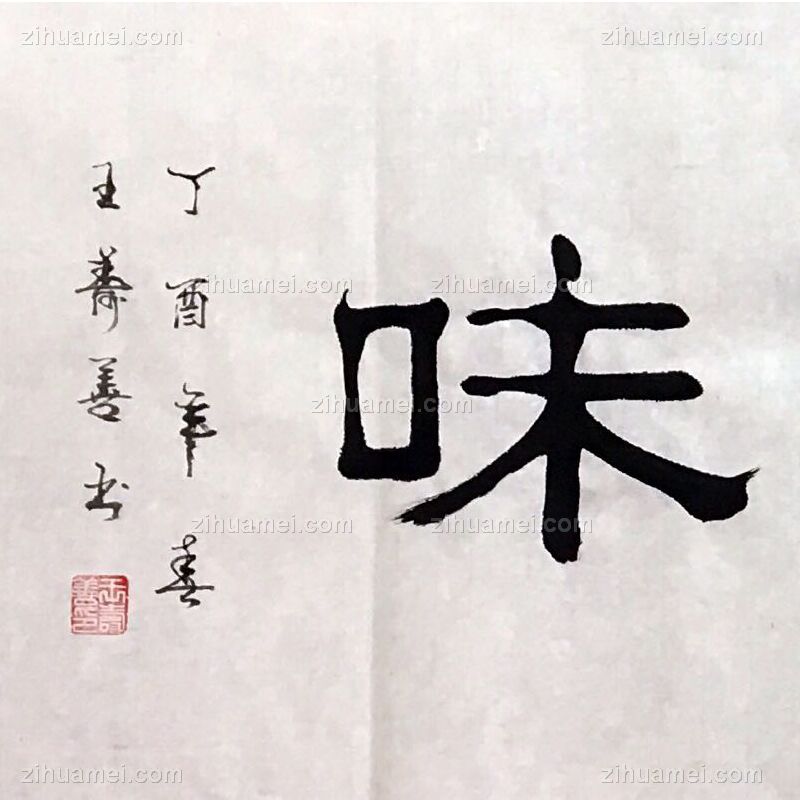 味
丁酉年春
王寿善书
王壽善印
zihuamei.com
zihuamei.com
zihuamei.com
zihuamei.com
zihuamei.com
zihuamei.com
zihuamei.com
zihuamei.com
zihuamei.com
zihuamei.com